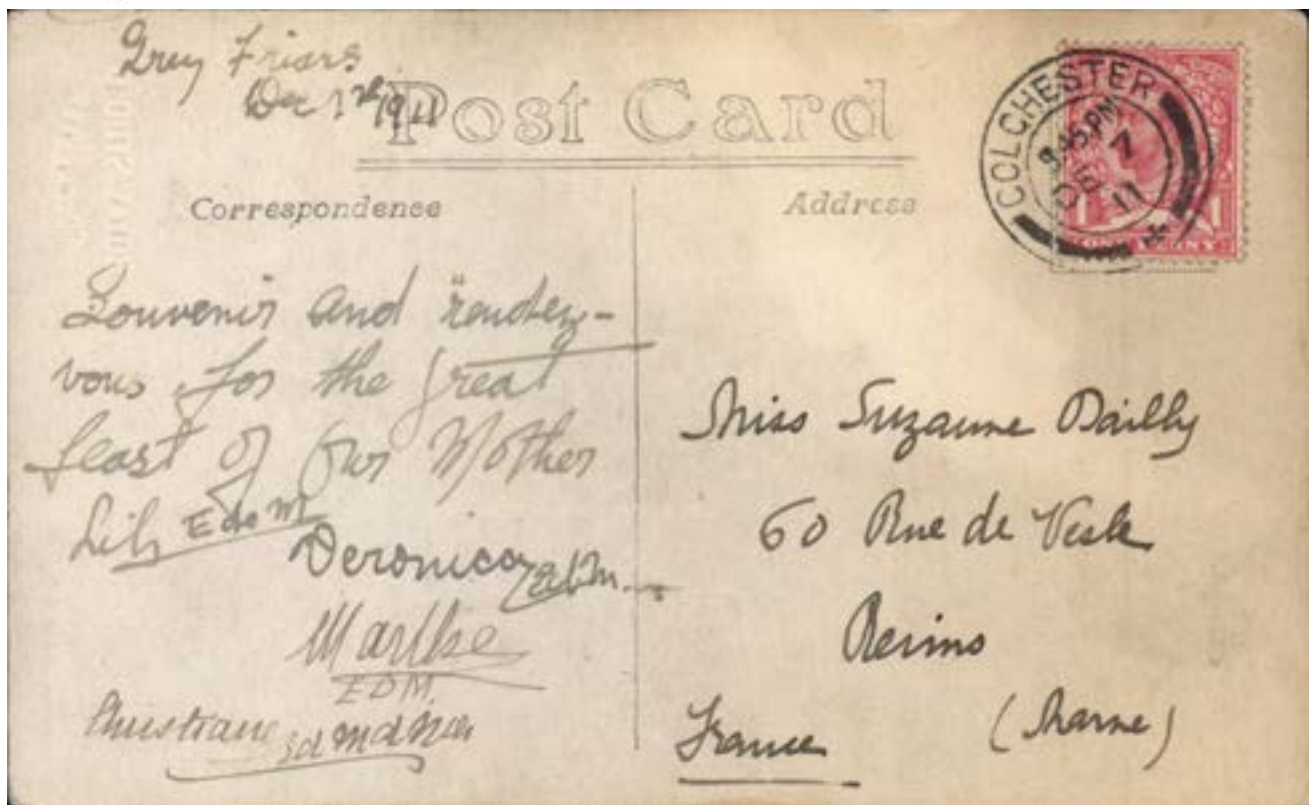 Grey Friars
Dec 1911
Post Card
COLCHESTER
3.45 PM
DE 7
11
ONE PENNY
Correspondence
Address
Souvenir and "rendez-
vous for the great
feast of our Mother
Lily E de M
Veronica
Marthe
E D M
Christiane
Miss Suzanne Dailly
60 Rue de Vesle
Reims
(Marne)
France